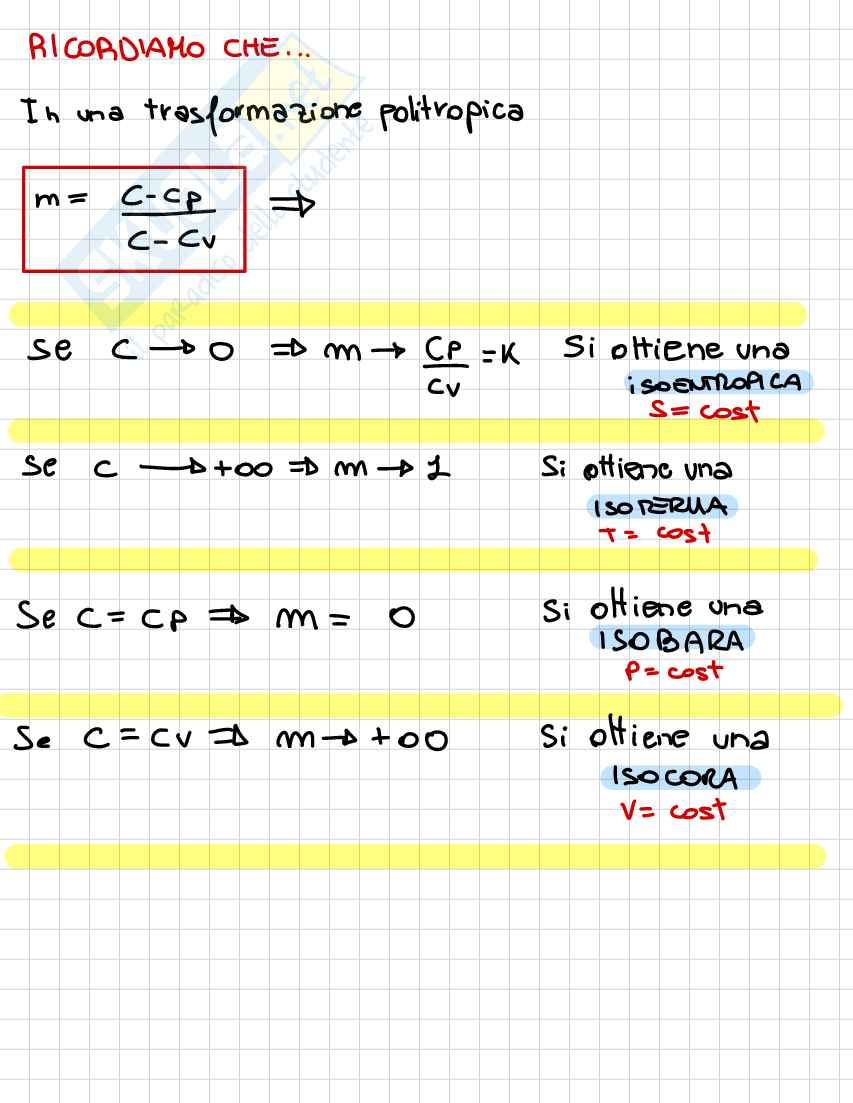 RICORDIAMO CHE...
In una trasformazione politropica
m = C - Cp / C - Cv ⇒
Se C → 0 ⇒ m → Cp / Cv = K Si ottiene una
ISOENTROPICA
S = cost
Se C → +∞ ⇒ m → 1 Si ottiene una
ISOTERMA
T = cost
Se C = Cp ⇒ m = 0 Si ottiene una
ISOBARA
P = cost
Se C = Cv ⇒ m → +∞ Si ottiene una
ISOCORA
V = cost
SKUOLA.net
il paradiso dello studente